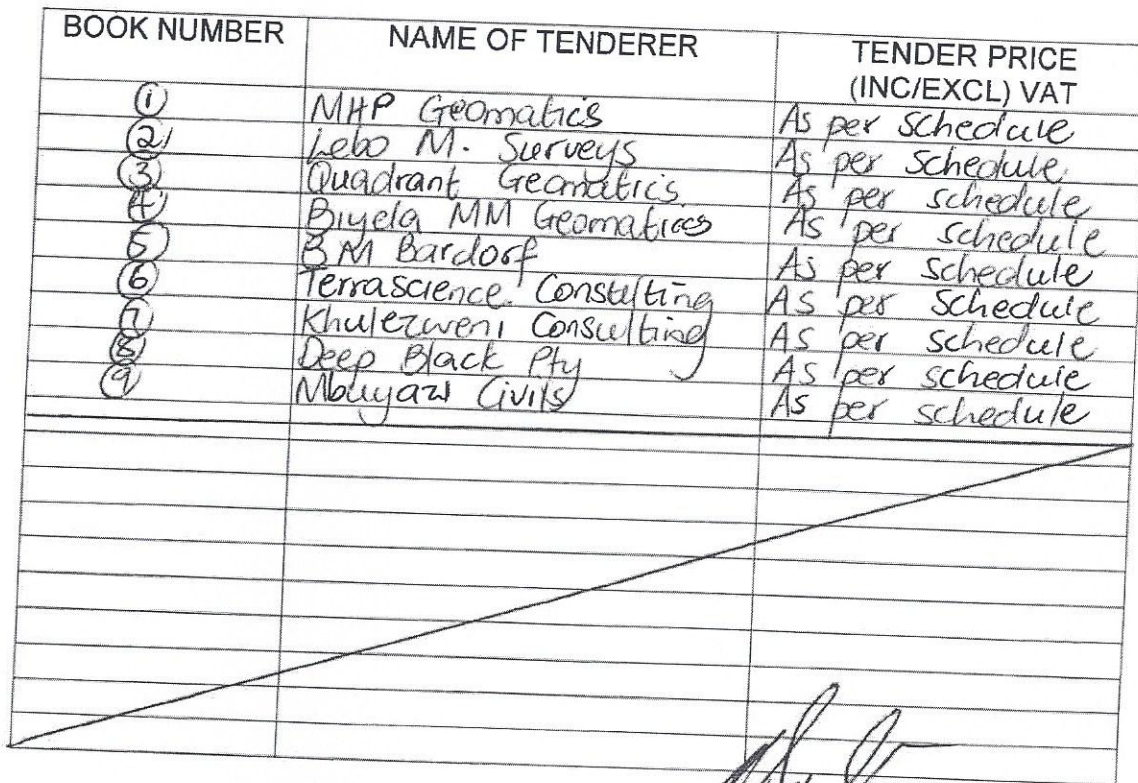 BOOK NUMBER NAME OF TENDERER TENDER PRICE
(INC/EXCL) VAT
1 MHP Geomatics As per schedule
2 Lebo M. Surveys As per schedule
3 Quadrant Geomatics As per schedule
4 Biyela MM Geomatics As per schedule
5 B M Bardorf As per schedule
6 Terrascience Consulting As per schedule
7 Khulezweni Consulting As per schedule
8 Deep Black Pty As per schedule
9 Mbuyazi Civils As per schedule